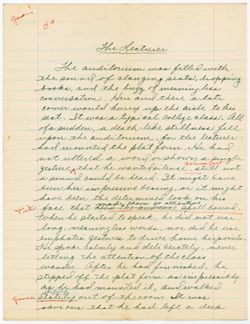 Good!
B+
The Lecturer
The auditorium was filled with
the sound of clanging seats, dropping
books, and the buzz of meaningless
conversation. Here and there a late
comer would hurry up the aisle to his
seat. It was a typical college class. All
of a sudden, a death like stillness fell
upon the auditorium, for the lecturer
had mounted the platform. He had
not uttered a word or shown a single
gesture that he wanted silence, still not
a sound could be heard. It might have
been his impressive bearing, or it might
have been the determined look on his
face that
When he started to speak, he did not use
long, meaningless words, nor did he use
emphatic gestures to drive home his points.
He spoke calmly and deliberately, never
letting the attention of the class
wander. After he had finished, he
stepped off the platform as impressively
as he had mounted it, and walked
stately out of the room. It was
obvious that he had left a deep